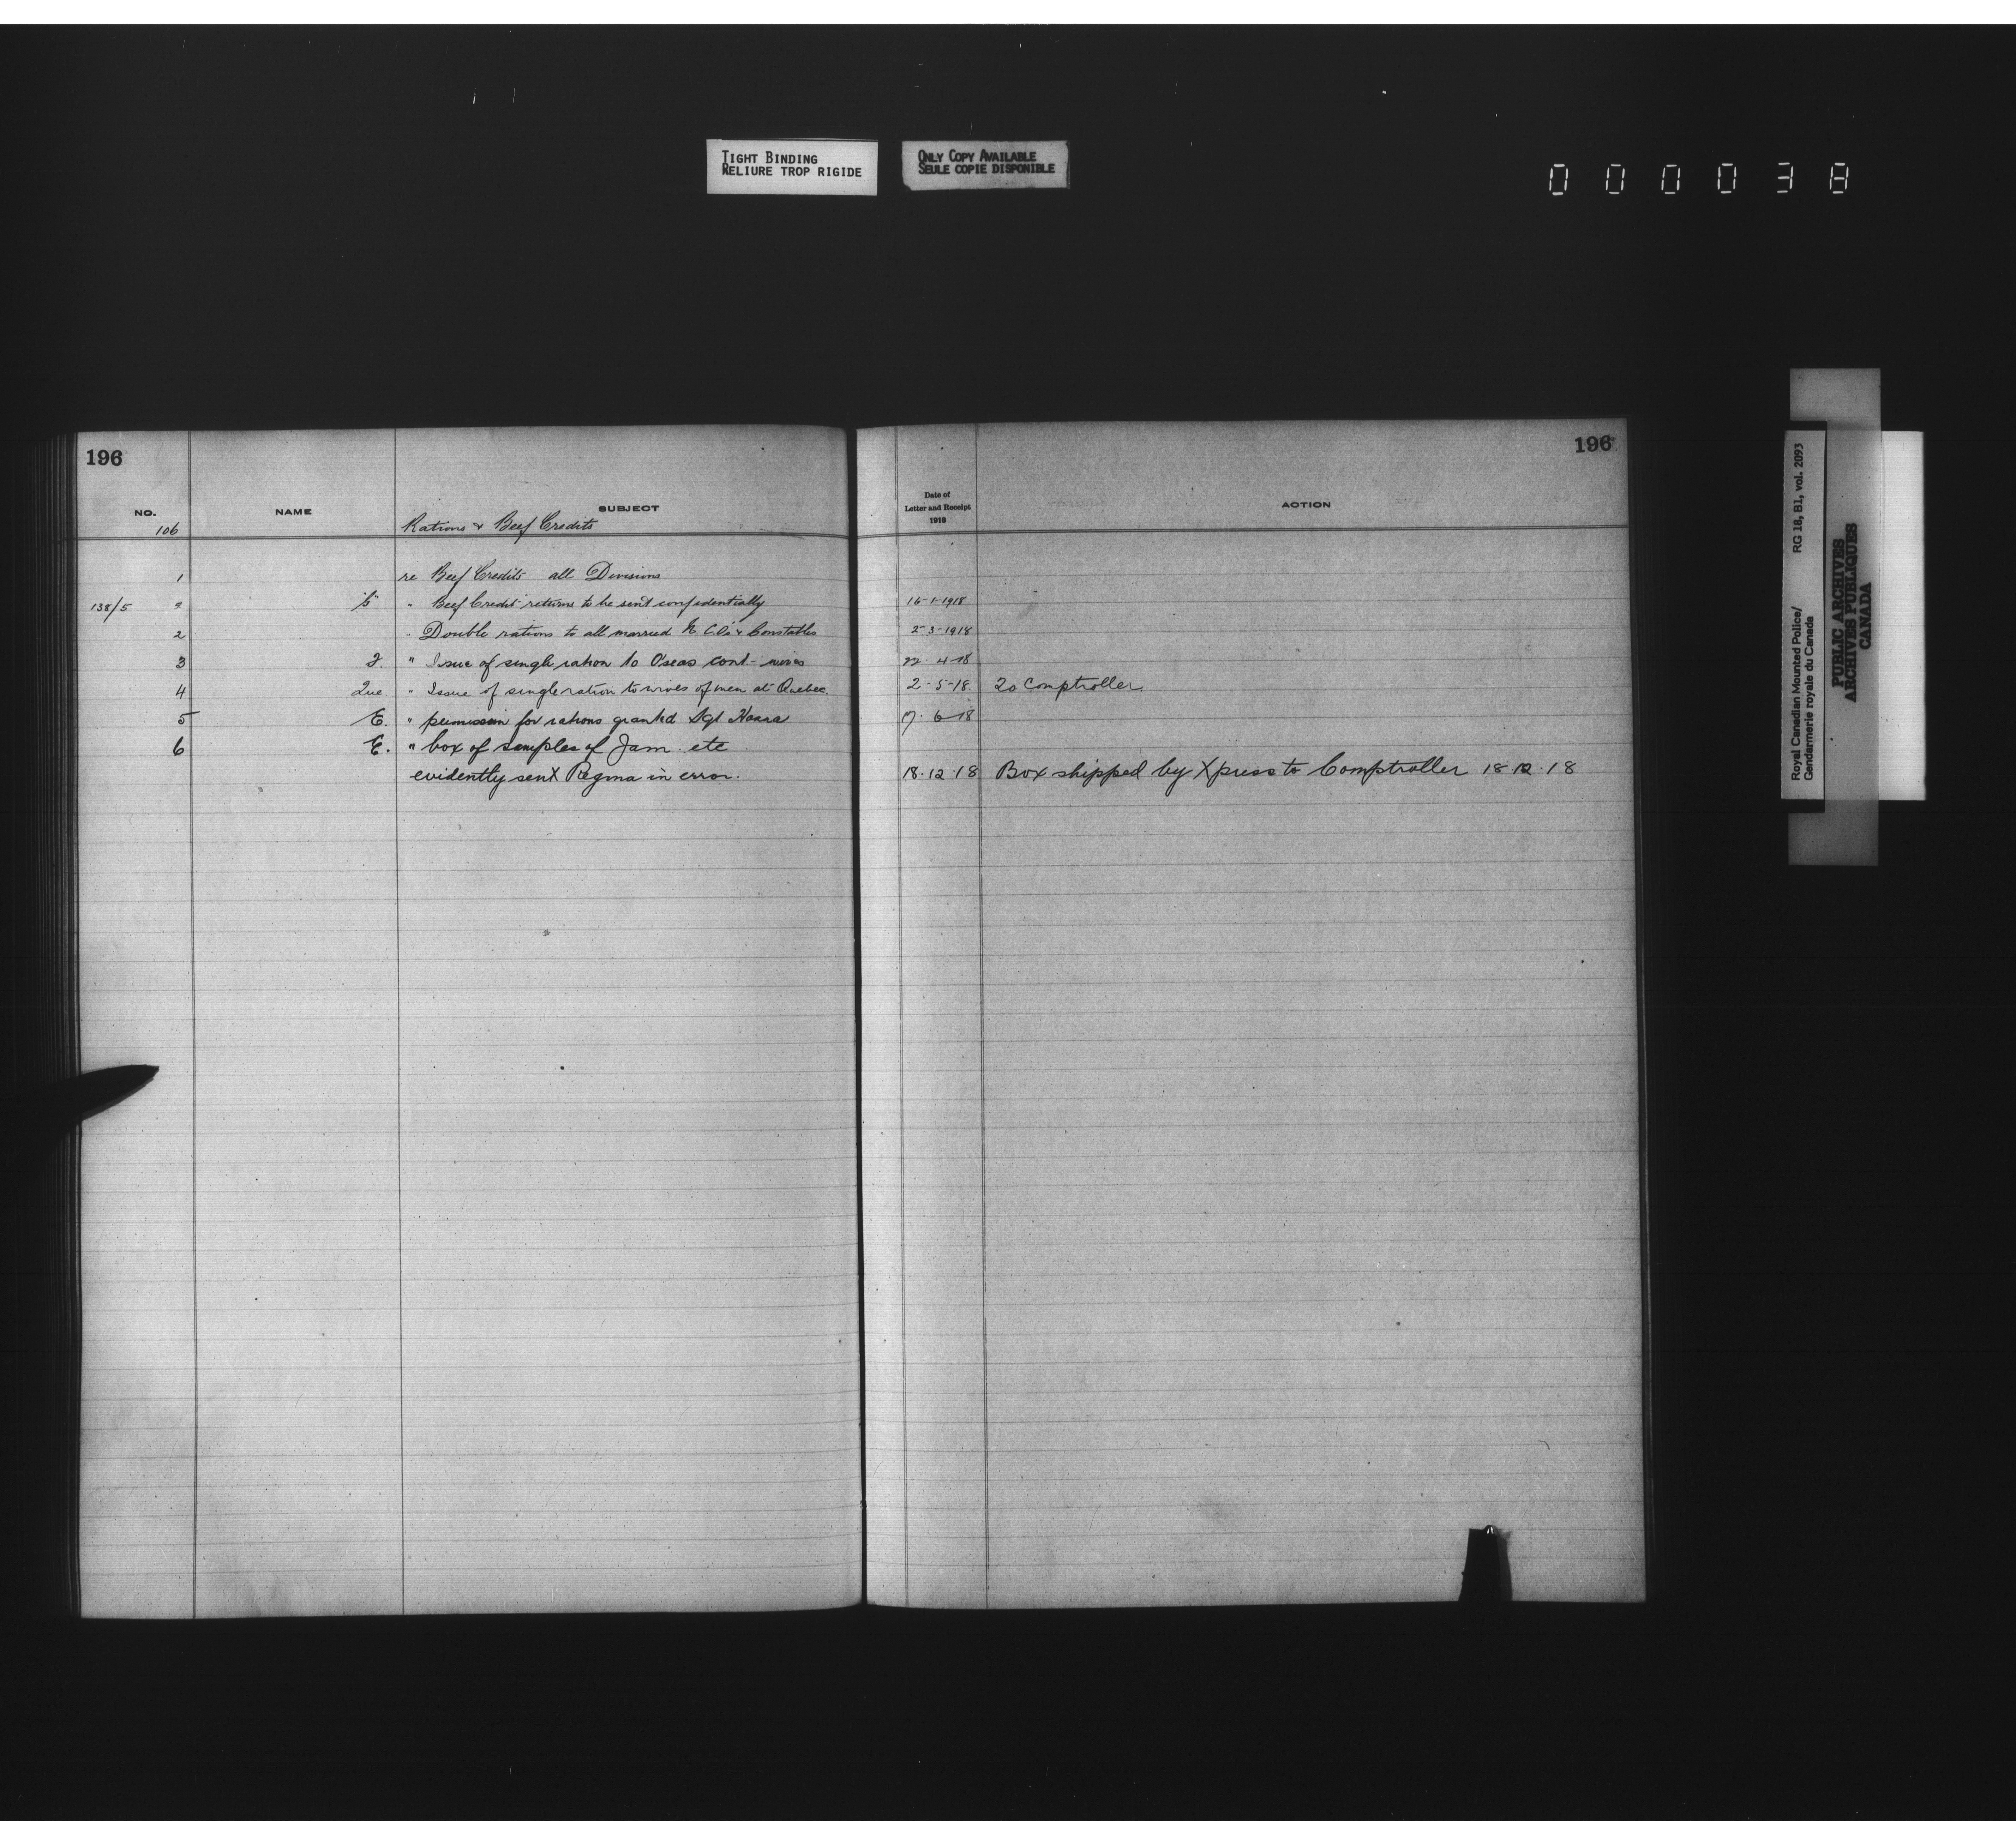 TIGHT BINDING
RELIURE TROP RIGIDE
ONLY COPY AVAILABLE
SEULE COPIE DISPONIBLE
000038
196
196
NO. NAME SUBJECT
Date of
Letter and Receipt
1918
ACTION
106 Rations & Beef Credits
1 re Beef Credits all Divisions
138/5 " Beef Credit returns to be sent confidentially 16-1-1918
2 " Double rations to all married N.C.O's & Constables 2-3-1918
3 " Issue of single ration to O'seas cont- wives 22-4-18
4 Que " Issue of single ration to wives of men at Quebec. 2-5-18 To Comptroller.
5 E. " permission for rations granted Sgt 7-6-18
6 E. " box of samples of Jam etc
evidently sent Regina in error. 18-12-18 Box shipped by Xpress to Comptroller 18-12-18
Royal Canadian Mounted Police/ RG 18, B1, vol. 2093
Gendarmerie royale du Canada
PUBLIC ARCHIVES
ARCHIVES PUBLIQUES
CANADA